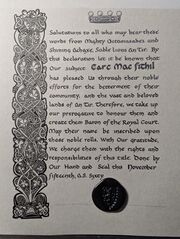 Salutations to all who may hear these
words from Mighty Ottomsaabes and
Shining Achaxe, Noble Lions An Tir. By
this declaration let it be known that
Our subject Earc Mac Fithil
has pleased Us through their noble
efforts for the betterment of their
community, and the vast and beloved
lands of An Tir. Therefore, we take up
our prerogative to honor them and
create them Baron of the Royal Court.
May their name be inscribed upon
those noble rolls. With Our gratitude,
We charge them with the rights and
responsibilities of this title. Done by
Our Hand and Seal this November
fifteenth, A.S. Sixty